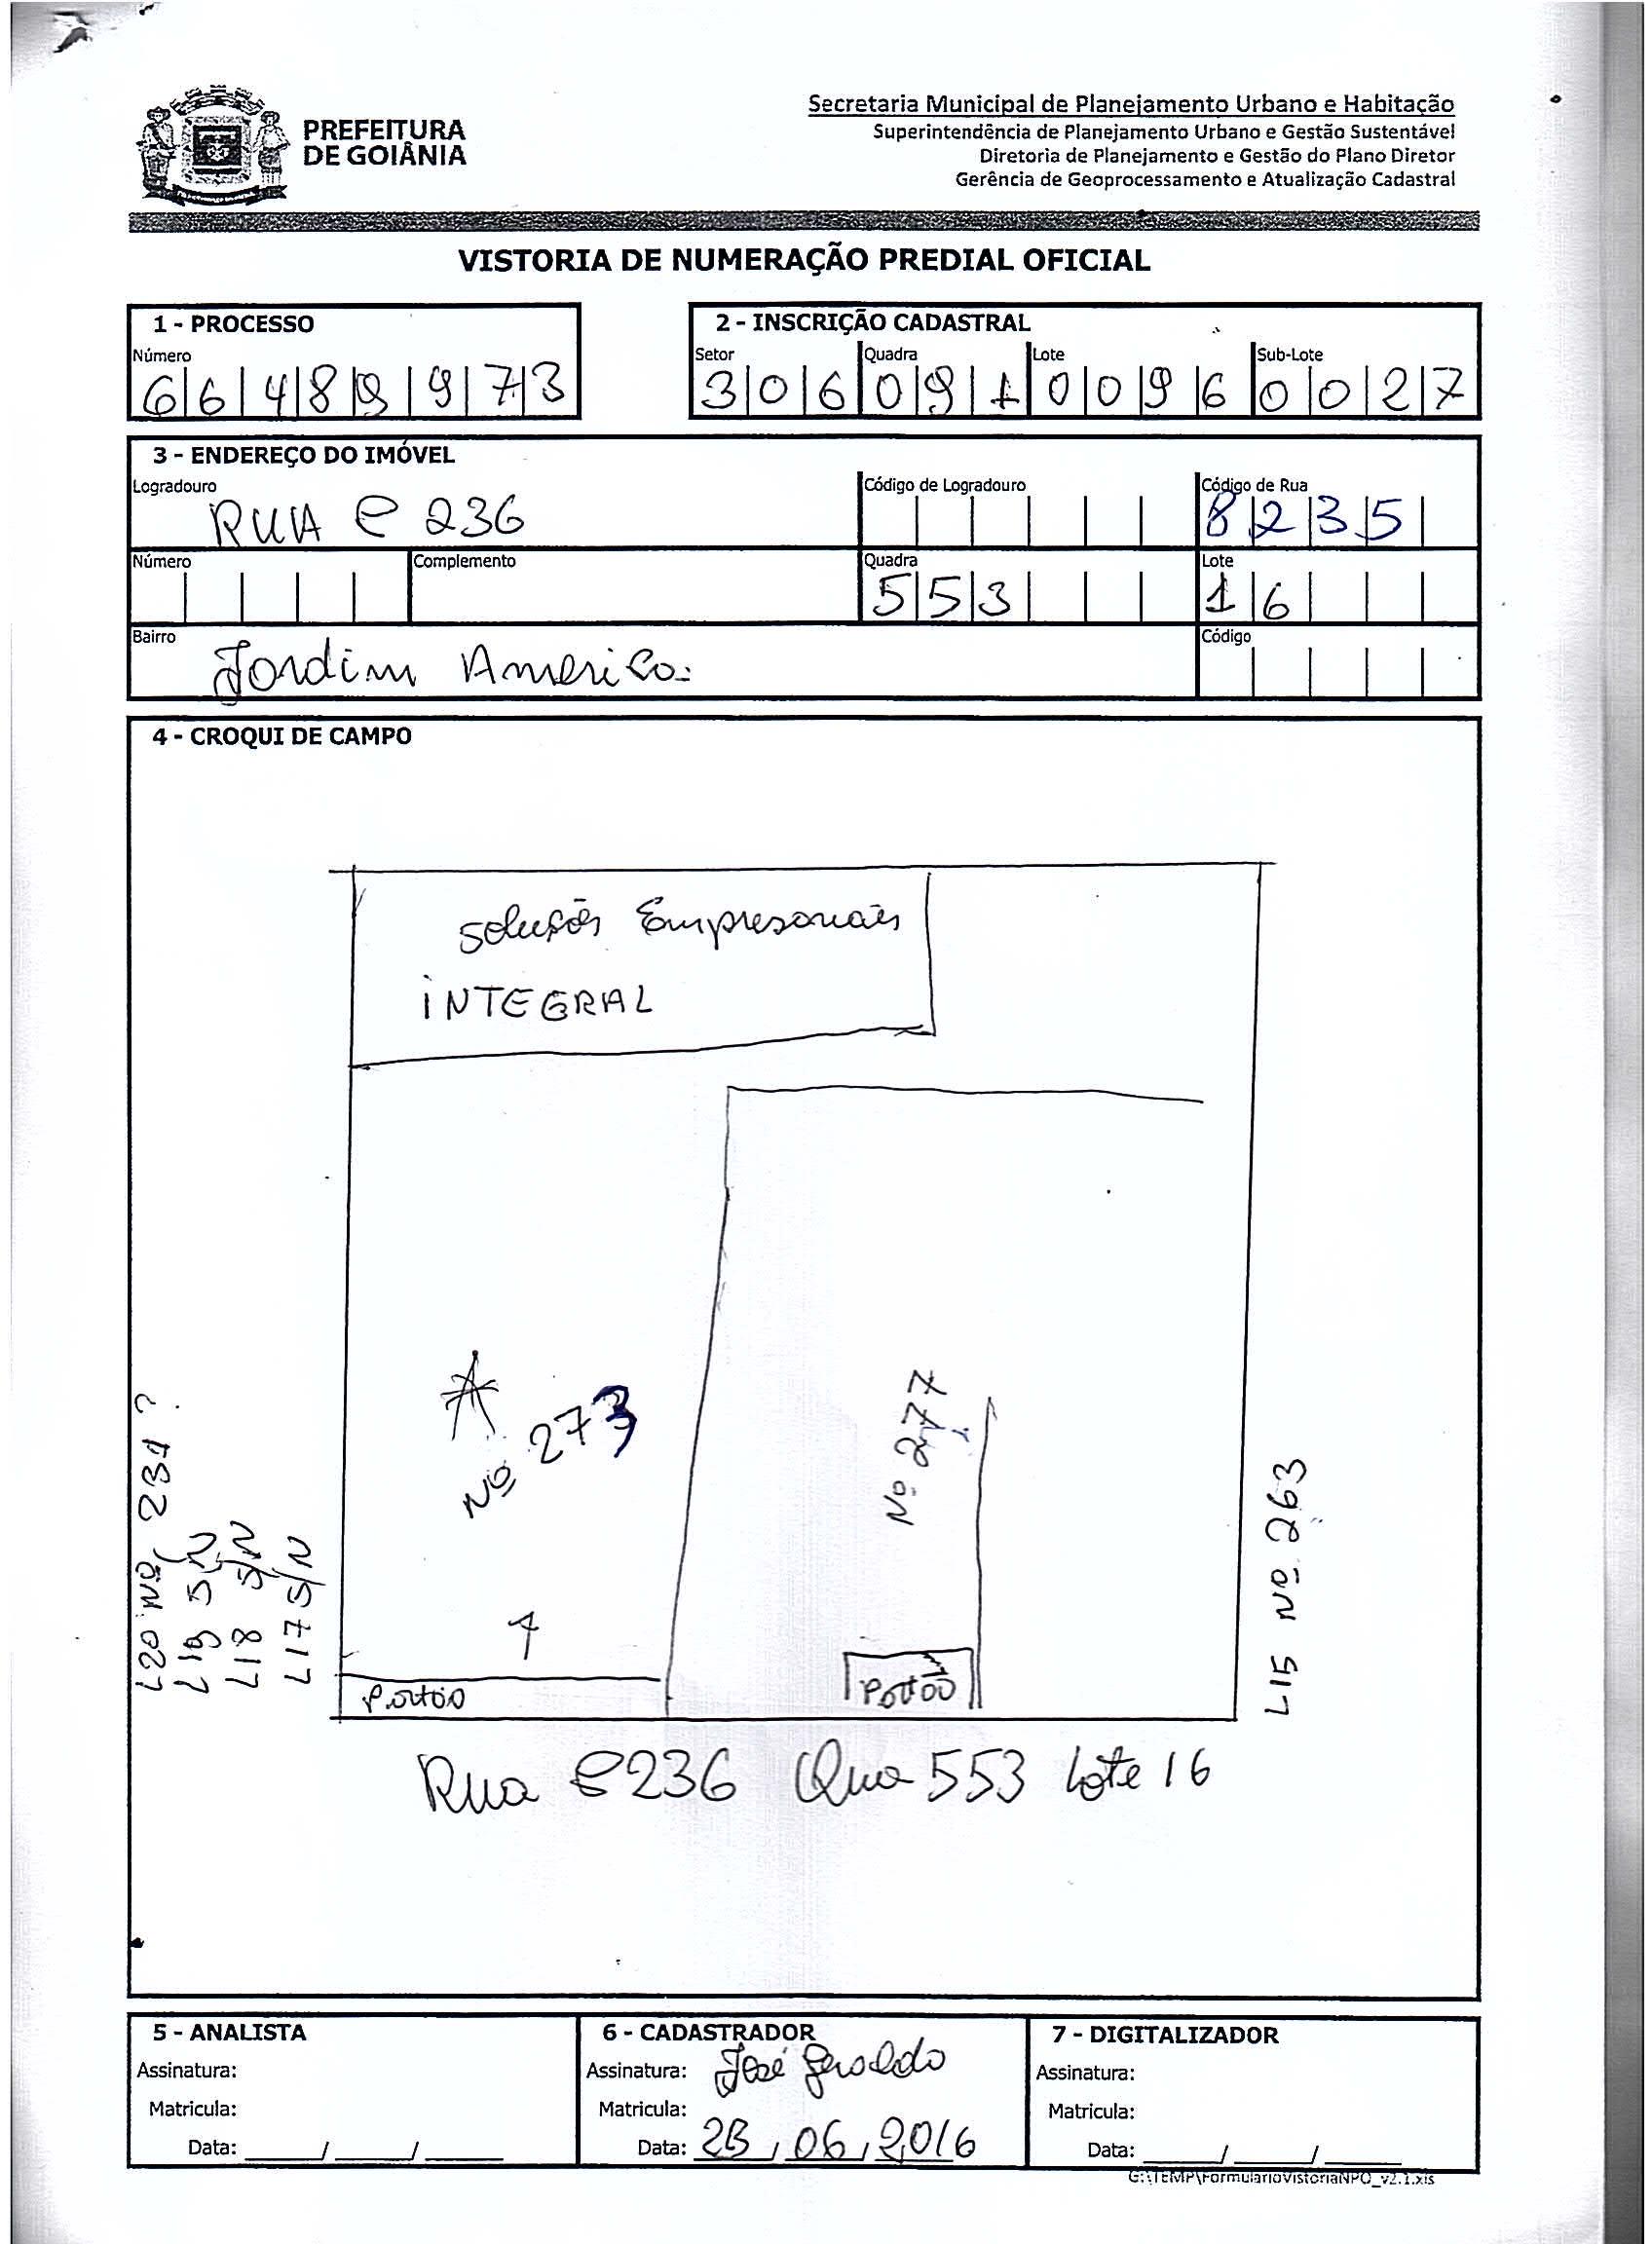 PREFEITURA
DE GOIÂNIA
Secretaria Municipal de Planejamento Urbano e Habitação
Superintendência de Planejamento Urbano e Gestão Sustentável
Diretoria de Planejamento e Gestão do Plano Diretor
Gerência de Geoprocessamento e Atualização Cadastral
VISTORIA DE NUMERAÇÃO PREDIAL OFICIAL
1 - PROCESSO
Número
6 6 4 8 9 9 7 3
2 - INSCRIÇÃO CADASTRAL
Setor Quadra Lote Sub-Lote
3 0 6 0 9 1 0 0 9 6 0 0 2 7
3 - ENDEREÇO DO IMÓVEL
Logradouro Código de Logradouro Código de Rua
RUA C 236 8 2 3 5
Número Complemento Quadra Lote
5 5 3 1 6
Bairro Código
Jardim America
4 - CROQUI DE CAMPO
Soluções Empresariais
INTEGRAL
Nº 273
Nº 277
L20 Nº 234 ?
L19 S/N
L18 S/N
L17 S/N
L15 Nº 263
Portão
Portão
Rua C236 Qua 553 Lote 16
5 - ANALISTA
Assinatura:
Matricula:
Data: ____/____/____
6 - CADASTRADOR
Assinatura: José Geraldo
Matricula:
Data: / 06 / 2016
7 - DIGITALIZADOR
Assinatura:
Matricula:
Data: ____/____/____
G:\TEMP\FormularioVistoriaNPO_v2.1.xls